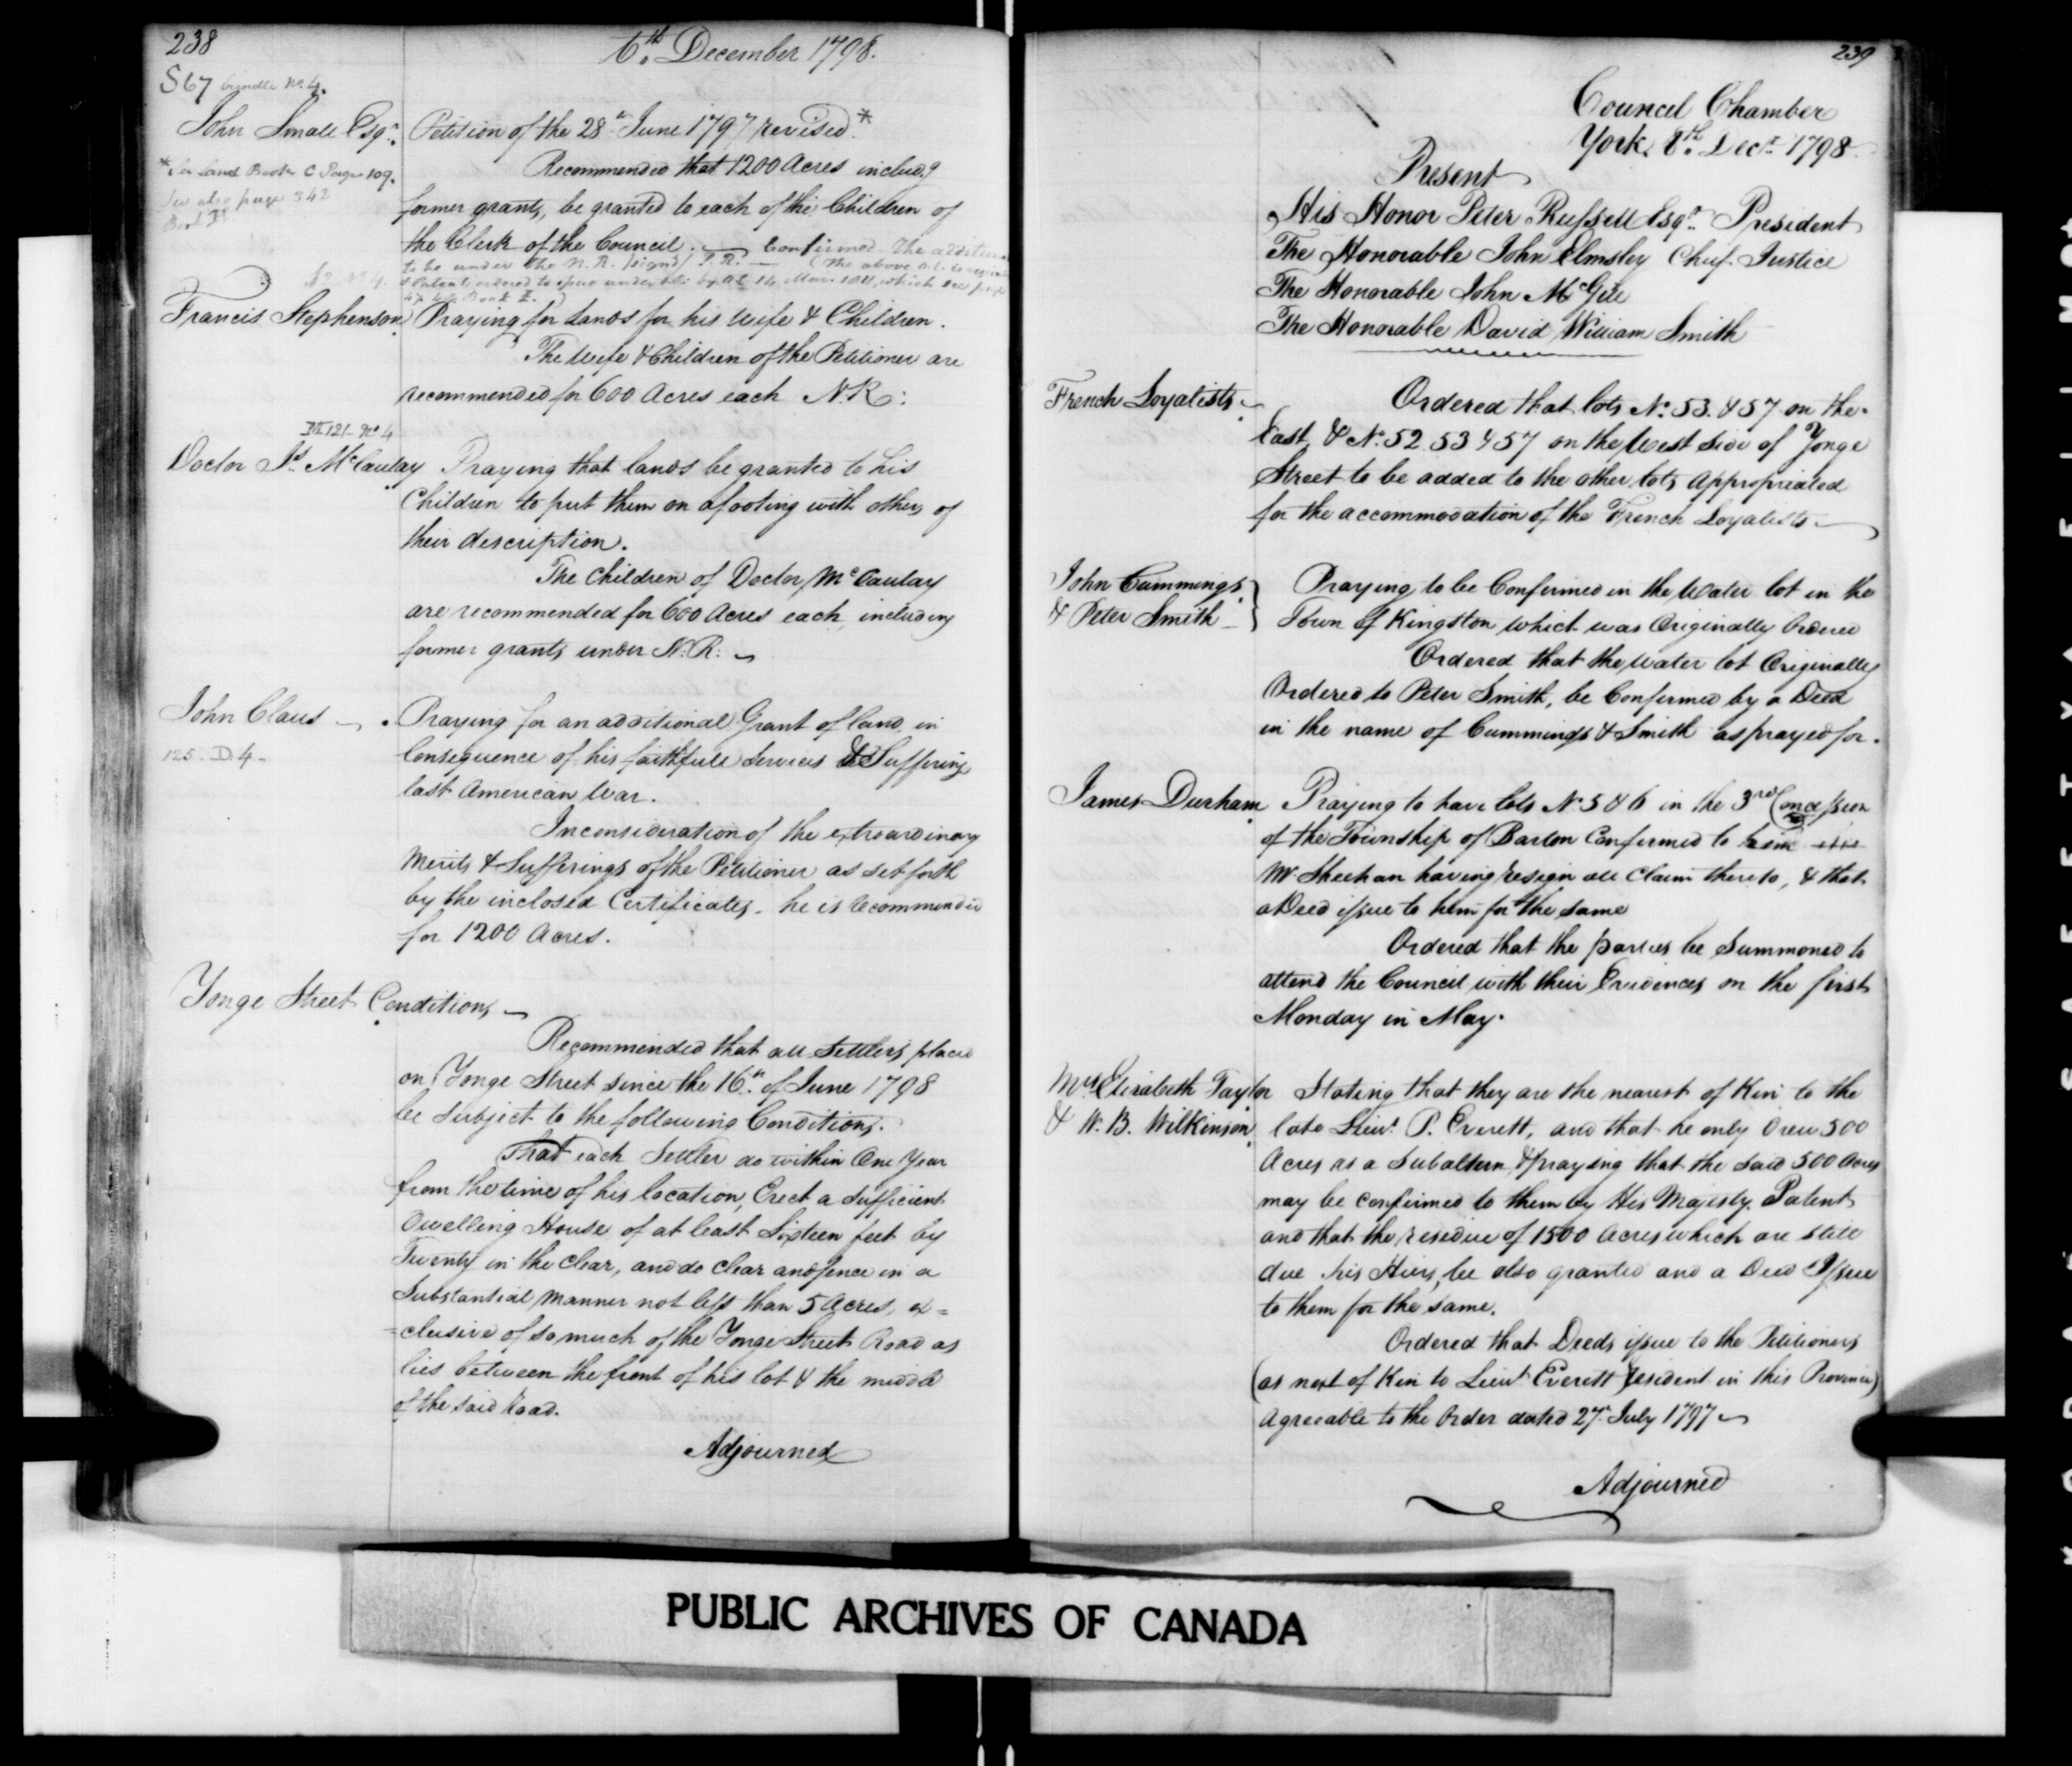 238
6th December 1798.
S67 bundle No. 4.
John Small Esqr. Petition of the 28th June 1797 revised*
* See Land Book C Page 109.
See also page 342
Recommended that 1200 Acres includg
former grants, be granted to each of the Children of
the Clerk of the Council. Confirmed. The additional
to be under the N. R. (signd) P. R. (The above
Francis Stephenson Praying for Lands for his Wife & Children.
The Wife & Children of the Petitioner are
recommended for 600 Acres each N. R:
M 121 No 4
Doctor Js. McCaulay Praying that lands be granted to his
Children to put them on a footing with others of
their description.
The Children of Doctor McCaulay
are recommended for 600 Acres each including
former grants under N. R:
John Claus Praying for an additional Grant of land in
125. D. 4
Consequence of his faithfull Services & Sufferings
last American War.
In consideration of the extraordinary
Merits & Sufferings of the Petitioner as set forth
by the inclosed Certificates. he is recommended
for 1200 Acres.
Yonge Street Conditions
Recommended that all Settlers placed
on Yonge Street since the 16th of June 1798
be subject to the following Conditions.
That each Settler do within One Year
from the time of his location, Erect a sufficient
Dwelling House of at least Sixteen feet by
Twenty in the Clear, and do clear and fence in a
Substantial manner not less than 5 Acres, ex=
=clusive of so much of the Yonge Street Road as
lies between the front of his lot & the middle
of the said Road.
Adjourned
239
Council Chamber
York. 8th. Decr. 1798
Present
His Honor Peter Russell Esqr. President
The Honorable John Elmsley Chief Justice
The Honorable John McGill
The Honorable David William Smith
French Loyalists Ordered that lots No. 53. & 57 on the
East, & No. 52 53 & 57 on the West side of Yonge
Street to be added to the other lots Appropriated
for the accommodation of the French Loyalists
John Cummings Praying to be Confirmed in the Water lot in the
& Peter Smith Town of Kingston which was Originally Ordered
Ordered that the Water lot Originally
Ordered to Peter Smith, be Confirmed by a Deed
in the name of Cummings & Smith as prayed for.
James Durham Praying to have lots No 5 & 6 in the 3rd Concession
of the Township of Barton Confirmed to him
Mr. Sheehan having resign all Claim thereto, & that
a Deed issue to him for the same
Ordered that the parties be Summoned to
attend the Council with their Evidences on the first
Monday in May.
Mrs. Elizabeth Taylor Stating that they are the nearest of Kin to the
& W. B. Wilkinson late Lieut. P. Everett, and that he only Drew 500
Acres as a Subaltern, & praying that the said 500 Acres
may be confirmed to them by His Majesty Patent
and that the residue of 1500 Acres which are still
due his Hiers, be also granted and a Deed Issue
to them for the same.
Ordered that Deeds issue to the Petitioners
(as next of Kin to Lieut Everett resident in this Province)
Agreeable to the Order dated 27th July 1797
Adjourned
PUBLIC ARCHIVES OF CANADA